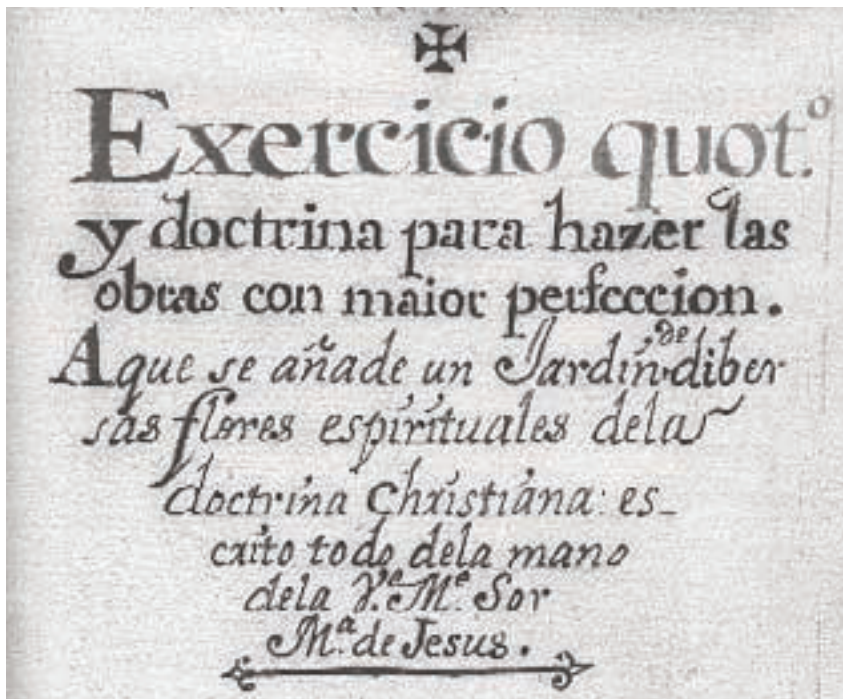 ✠
Exercicio quot.º
y doctrina para hazer las
obras con maior perfeccion.
A que se añade un Jardin de diber
sas flores espirituales dela
doctrina Christiana: es-
crito todo dela mano
dela V.e M.e Sor
M.a de Jesus.